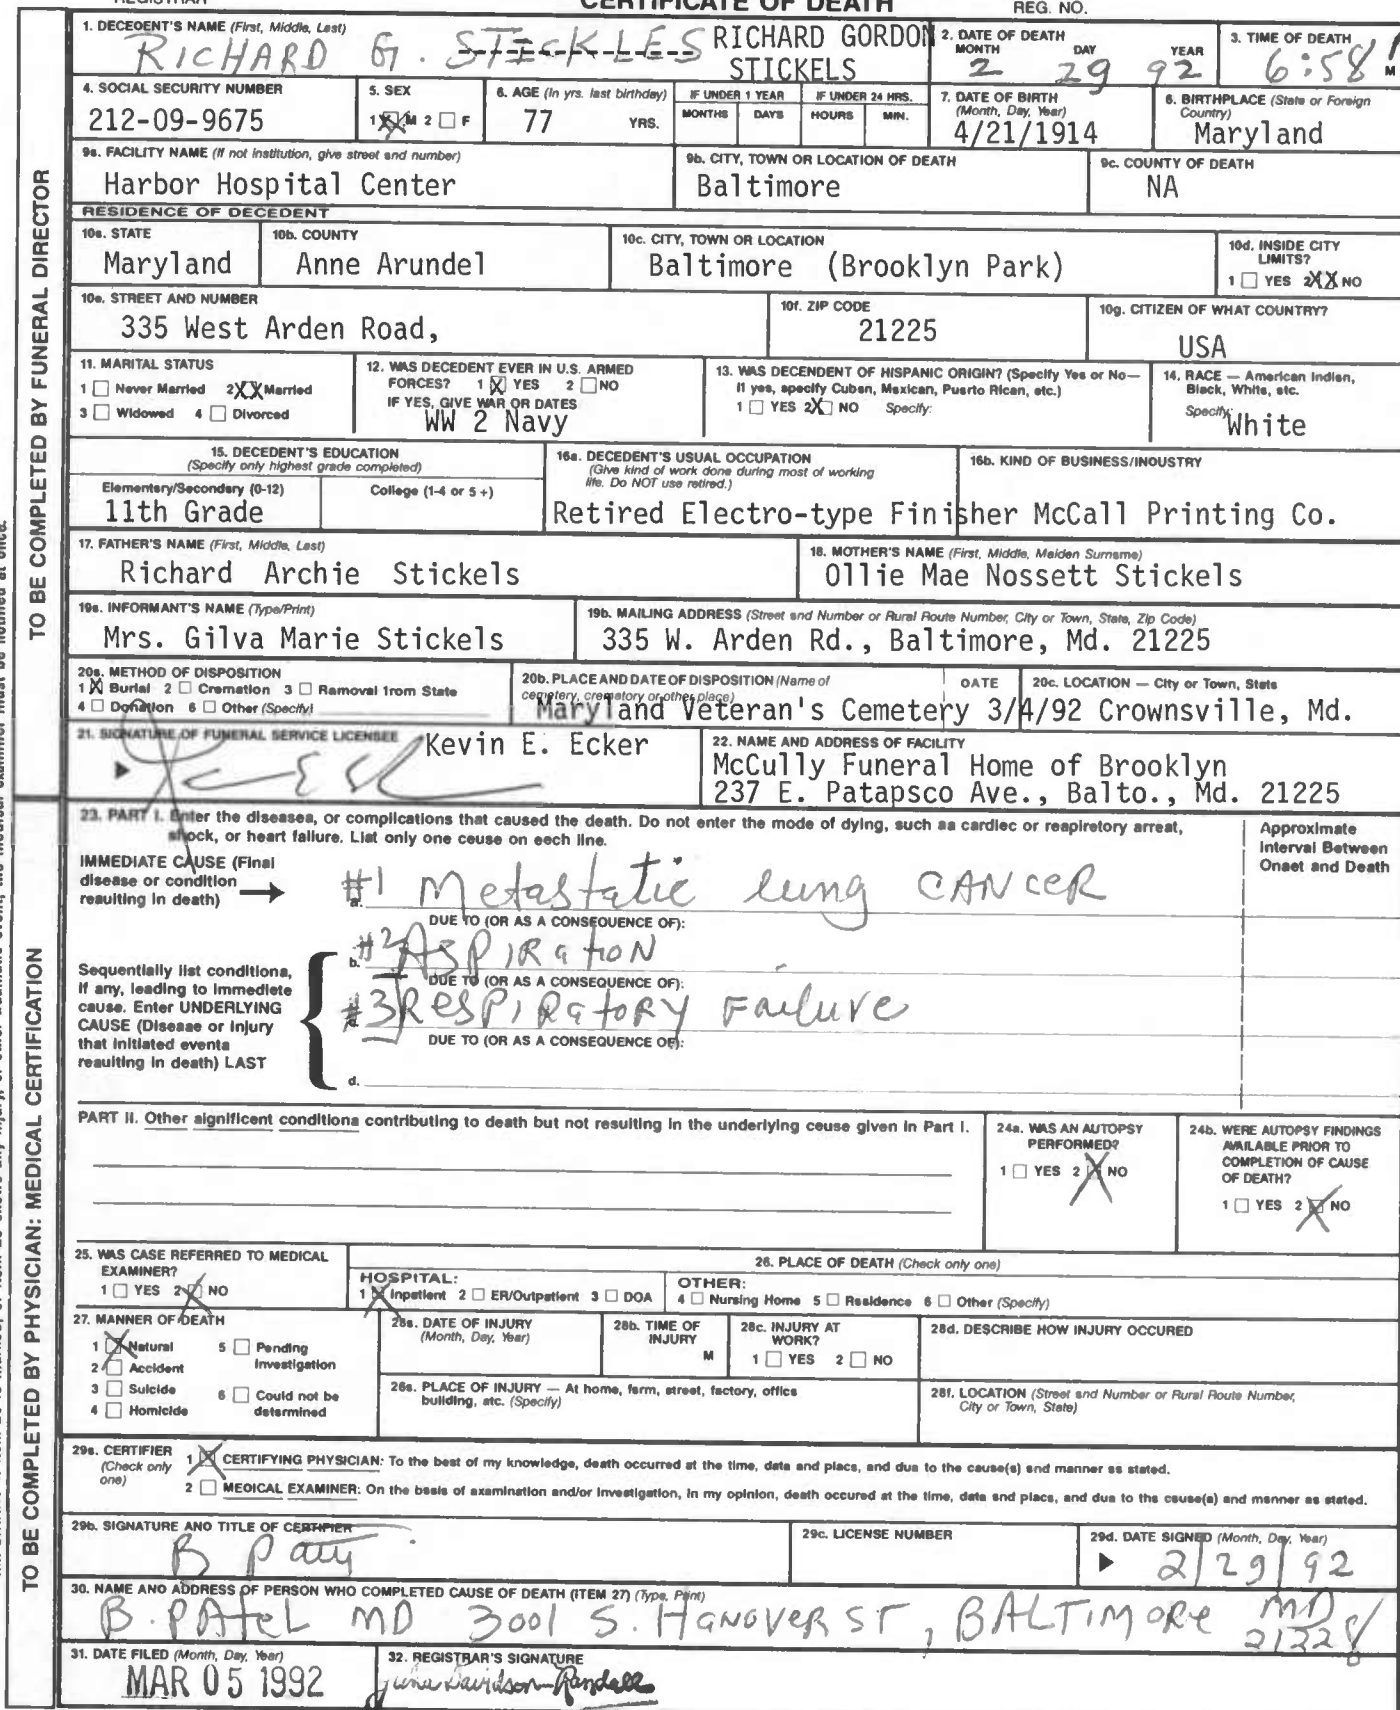 REGISTRAR
CERTIFICATE OF DEATH
REG. NO.
TO BE COMPLETED BY FUNERAL DIRECTOR
1. DECEDENT'S NAME (First, Middle, Last)
RICHARD G. STICKLES RICHARD GORDON
STICKELS
2. DATE OF DEATH
MONTH DAY YEAR
2 29 92
3. TIME OF DEATH
6:58 M
4. SOCIAL SECURITY NUMBER
212-09-9675
5. SEX
1 XX M 2 ☐ F
6. AGE (In yrs. last birthday)
77 YRS.
IF UNDER 1 YEAR
MONTHS DAYS
IF UNDER 24 HRS.
HOURS MIN.
7. DATE OF BIRTH
(Month, Day, Year)
4/21/1914
8. BIRTHPLACE (State or Foreign
Country)
Maryland
9a. FACILITY NAME (If not institution, give street and number)
Harbor Hospital Center
9b. CITY, TOWN OR LOCATION OF DEATH
Baltimore
9c. COUNTY OF DEATH
NA
RESIDENCE OF DECEDENT
10a. STATE
Maryland
10b. COUNTY
Anne Arundel
10c. CITY, TOWN OR LOCATION
Baltimore (Brooklyn Park)
10d. INSIDE CITY
LIMITS?
1 ☐ YES 2XX NO
10e. STREET AND NUMBER
335 West Arden Road,
10f. ZIP CODE
21225
10g. CITIZEN OF WHAT COUNTRY?
USA
11. MARITAL STATUS
1 ☐ Never Married 2XX Married
3 ☐ Widowed 4 ☐ Divorced
12. WAS DECEDENT EVER IN U.S. ARMED
FORCES? 1 X YES 2 ☐ NO
IF YES, GIVE WAR OR DATES
WW 2 Navy
13. WAS DECENDENT OF HISPANIC ORIGIN? (Specify Yes or No—
If yes, specify Cuban, Mexican, Puerto Rican, etc.)
1 ☐ YES 2X NO Specify:
14. RACE — American Indian,
Black, White, etc.
Specify:
White
15. DECEDENT'S EDUCATION
(Specify only highest grade completed)
Elementary/Secondary (0-12)
11th Grade
College (1-4 or 5 +)
16a. DECEDENT'S USUAL OCCUPATION
(Give kind of work done during most of working
life. Do NOT use retired.)
16b. KIND OF BUSINESS/INDUSTRY
Retired Electro-type Finisher McCall Printing Co.
17. FATHER'S NAME (First, Middle, Last)
Richard Archie Stickels
18. MOTHER'S NAME (First, Middle, Maiden Surname)
Ollie Mae Nossett Stickels
19a. INFORMANT'S NAME (Type/Print)
Mrs. Gilva Marie Stickels
19b. MAILING ADDRESS (Street and Number or Rural Route Number, City or Town, State, Zip Code)
335 W. Arden Rd., Baltimore, Md. 21225
20a. METHOD OF DISPOSITION
1 X Burial 2 ☐ Cremation 3 ☐ Removal from State
4 ☐ Donation 6 ☐ Other (Specify)
20b. PLACE AND DATE OF DISPOSITION (Name of
cemetery, crematory or other place)
DATE
20c. LOCATION — City or Town, State
Maryland Veteran's Cemetery 3/4/92 Crownsville, Md.
21. SIGNATURE OF FUNERAL SERVICE LICENSEE
Kevin E. Ecker
22. NAME AND ADDRESS OF FACILITY
McCully Funeral Home of Brooklyn
237 E. Patapsco Ave., Balto., Md. 21225
TO BE COMPLETED BY PHYSICIAN: MEDICAL CERTIFICATION
23. PART I. Enter the diseases, or complications that caused the death. Do not enter the mode of dying, such as cardiac or respiratory arrest,
shock, or heart failure. List only one cause on each line.
Approximate
Interval Between
Onset and Death
IMMEDIATE CAUSE (Final
disease or condition
resulting in death)
#1 Metastatic lung CANCER
a.
DUE TO (OR AS A CONSEQUENCE OF):
Sequentially list conditions,
if any, leading to immediate
cause. Enter UNDERLYING
CAUSE (Disease or injury
that initiated events
resulting in death) LAST
#2 ASPIRATION
b.
DUE TO (OR AS A CONSEQUENCE OF):
#3 RESPIRATORY Failure
DUE TO (OR AS A CONSEQUENCE OF):
d.
PART II. Other significant conditions contributing to death but not resulting in the underlying cause given in Part I.
24a. WAS AN AUTOPSY
PERFORMED?
1 ☐ YES 2 X NO
24b. WERE AUTOPSY FINDINGS
AVAILABLE PRIOR TO
COMPLETION OF CAUSE
OF DEATH?
1 ☐ YES 2 X NO
25. WAS CASE REFERRED TO MEDICAL
EXAMINER?
1 ☐ YES 2 X NO
26. PLACE OF DEATH (Check only one)
HOSPITAL:
1 X Inpatient 2 ☐ ER/Outpatient 3 ☐ DOA
OTHER:
4 ☐ Nursing Home 5 ☐ Residence 6 ☐ Other (Specify)
27. MANNER OF DEATH
1 X Natural 5 ☐ Pending
2 ☐ Accident Investigation
3 ☐ Suicide 6 ☐ Could not be
4 ☐ Homicide determined
28a. DATE OF INJURY
(Month, Day, Year)
28b. TIME OF
INJURY
M
28c. INJURY AT
WORK?
1 ☐ YES 2 ☐ NO
28d. DESCRIBE HOW INJURY OCCURED
28e. PLACE OF INJURY — At home, farm, street, factory, office
building, etc. (Specify)
28f. LOCATION (Street and Number or Rural Route Number,
City or Town, State)
29a. CERTIFIER
(Check only
one)
1 X CERTIFYING PHYSICIAN: To the best of my knowledge, death occurred at the time, date and place, and due to the cause(s) and manner as stated.
2 ☐ MEDICAL EXAMINER: On the basis of examination and/or investigation, in my opinion, death occured at the time, date and place, and due to the cause(s) and manner as stated.
29b. SIGNATURE AND TITLE OF CERTIFIER
29c. LICENSE NUMBER
29d. DATE SIGNED (Month, Day, Year)
2/29/92
30. NAME AND ADDRESS OF PERSON WHO COMPLETED CAUSE OF DEATH (ITEM 27) (Type, Print)
B. PATEL MD 3001 S. HANOVER ST, BALTIMORE MD
31. DATE FILED (Month, Day, Year)
MAR 05 1992
32. REGISTRAR'S SIGNATURE
Julia Davidson-Randall